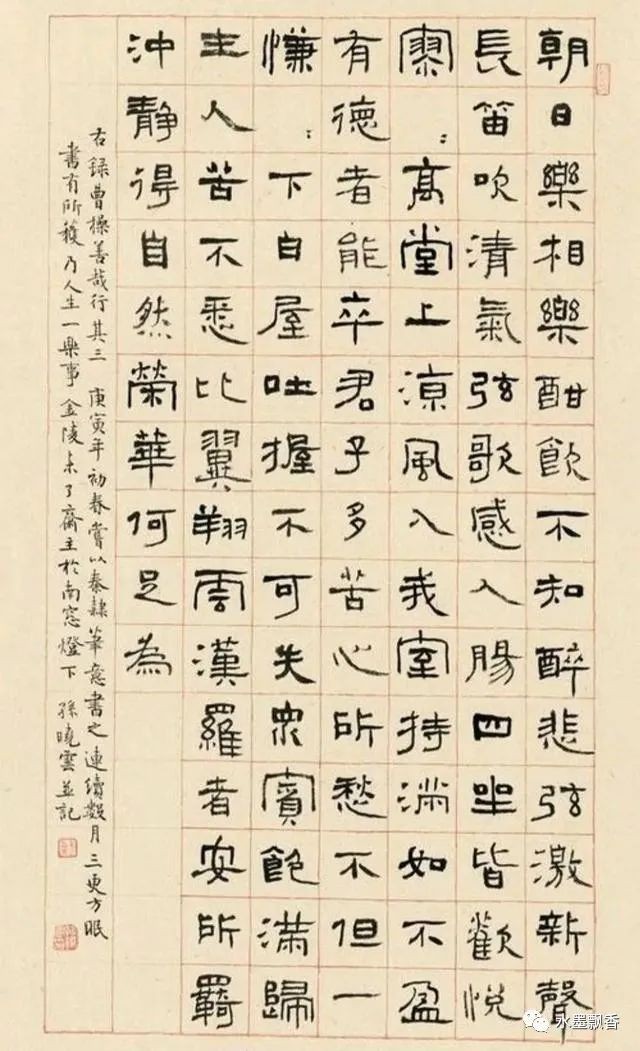 朝日樂相樂酣飲不知醉悲弦激新聲
長笛吹清氣弦歌感人腸四坐皆歡悅
寥〻高堂上涼風入我室持滿如不盈
有德者能卒君子多苦心所愁不但一
慊〻下白屋吐握不可失眾賓飽滿歸
主人苦不悉比翼翔雲漢羅者安所羈
沖靜得自然榮華何足為
右錄曹操善哉行其三 庚寅年初春嘗以秦隸筆意書之連續數月三更方眠
書有所獲乃人生一樂事 金陵未了齋主於南窓燈下 孫曉雲並記
水墨飘香